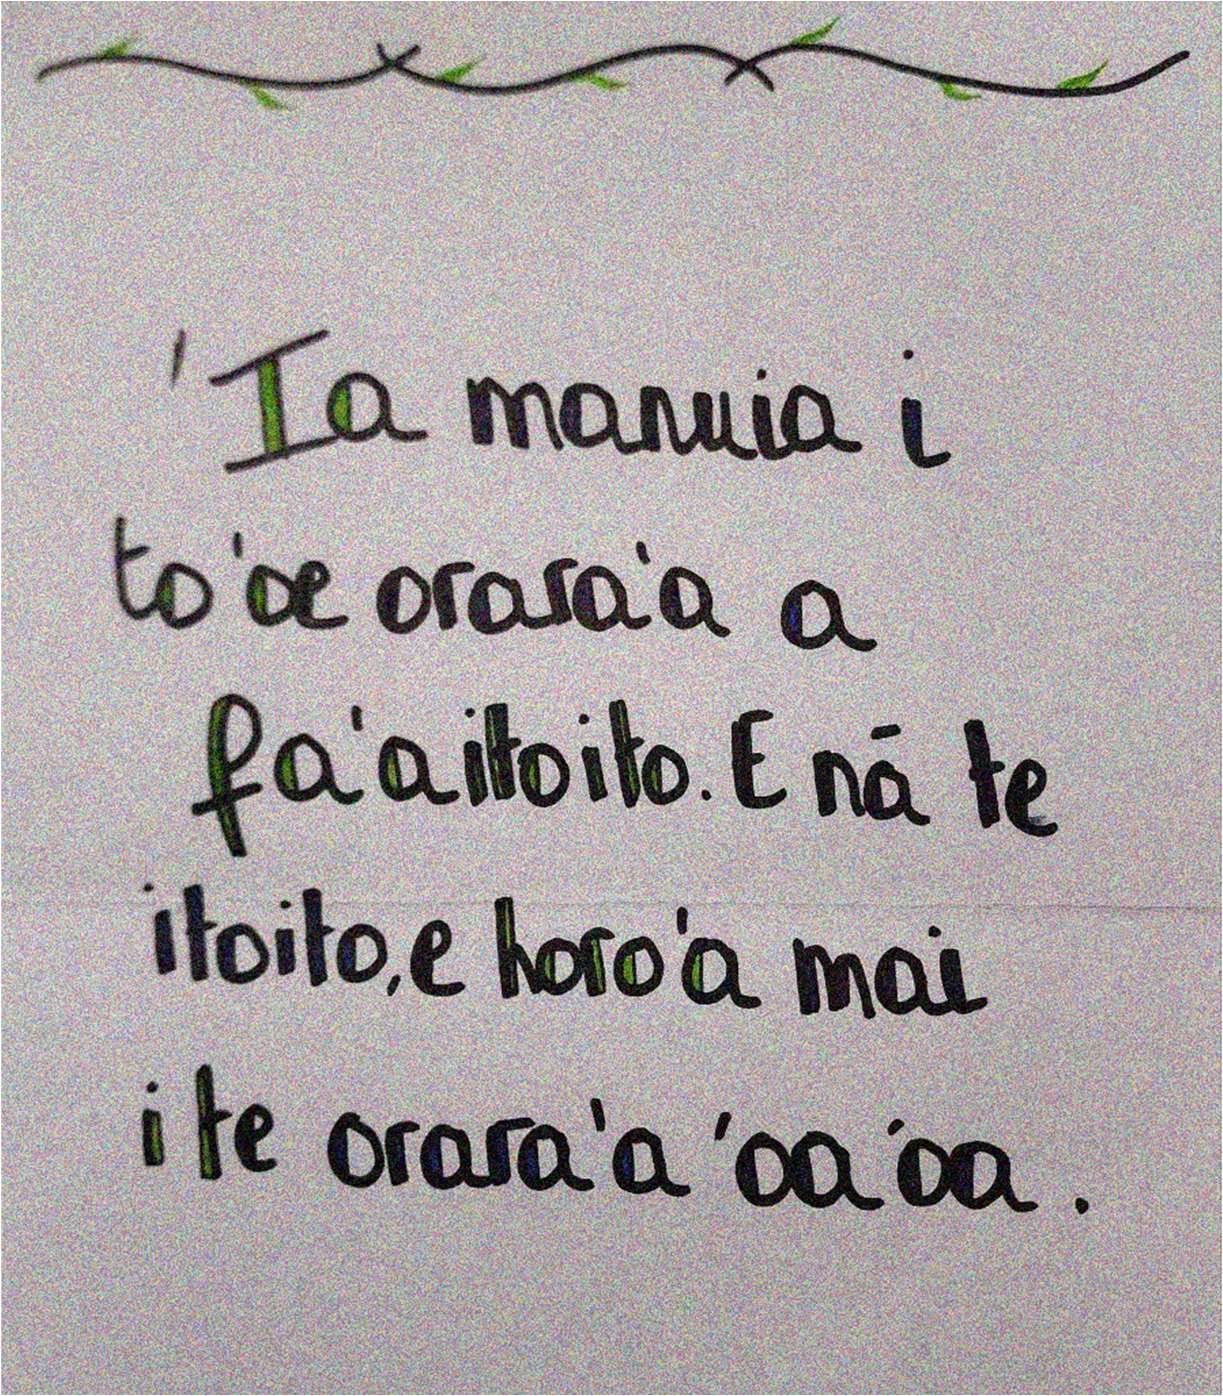 'Ia manuia i
to 'oe orara'a a
fa'aitoito. E nā te
itoito, e horo'a mai
i te orara'a 'oa'oa.